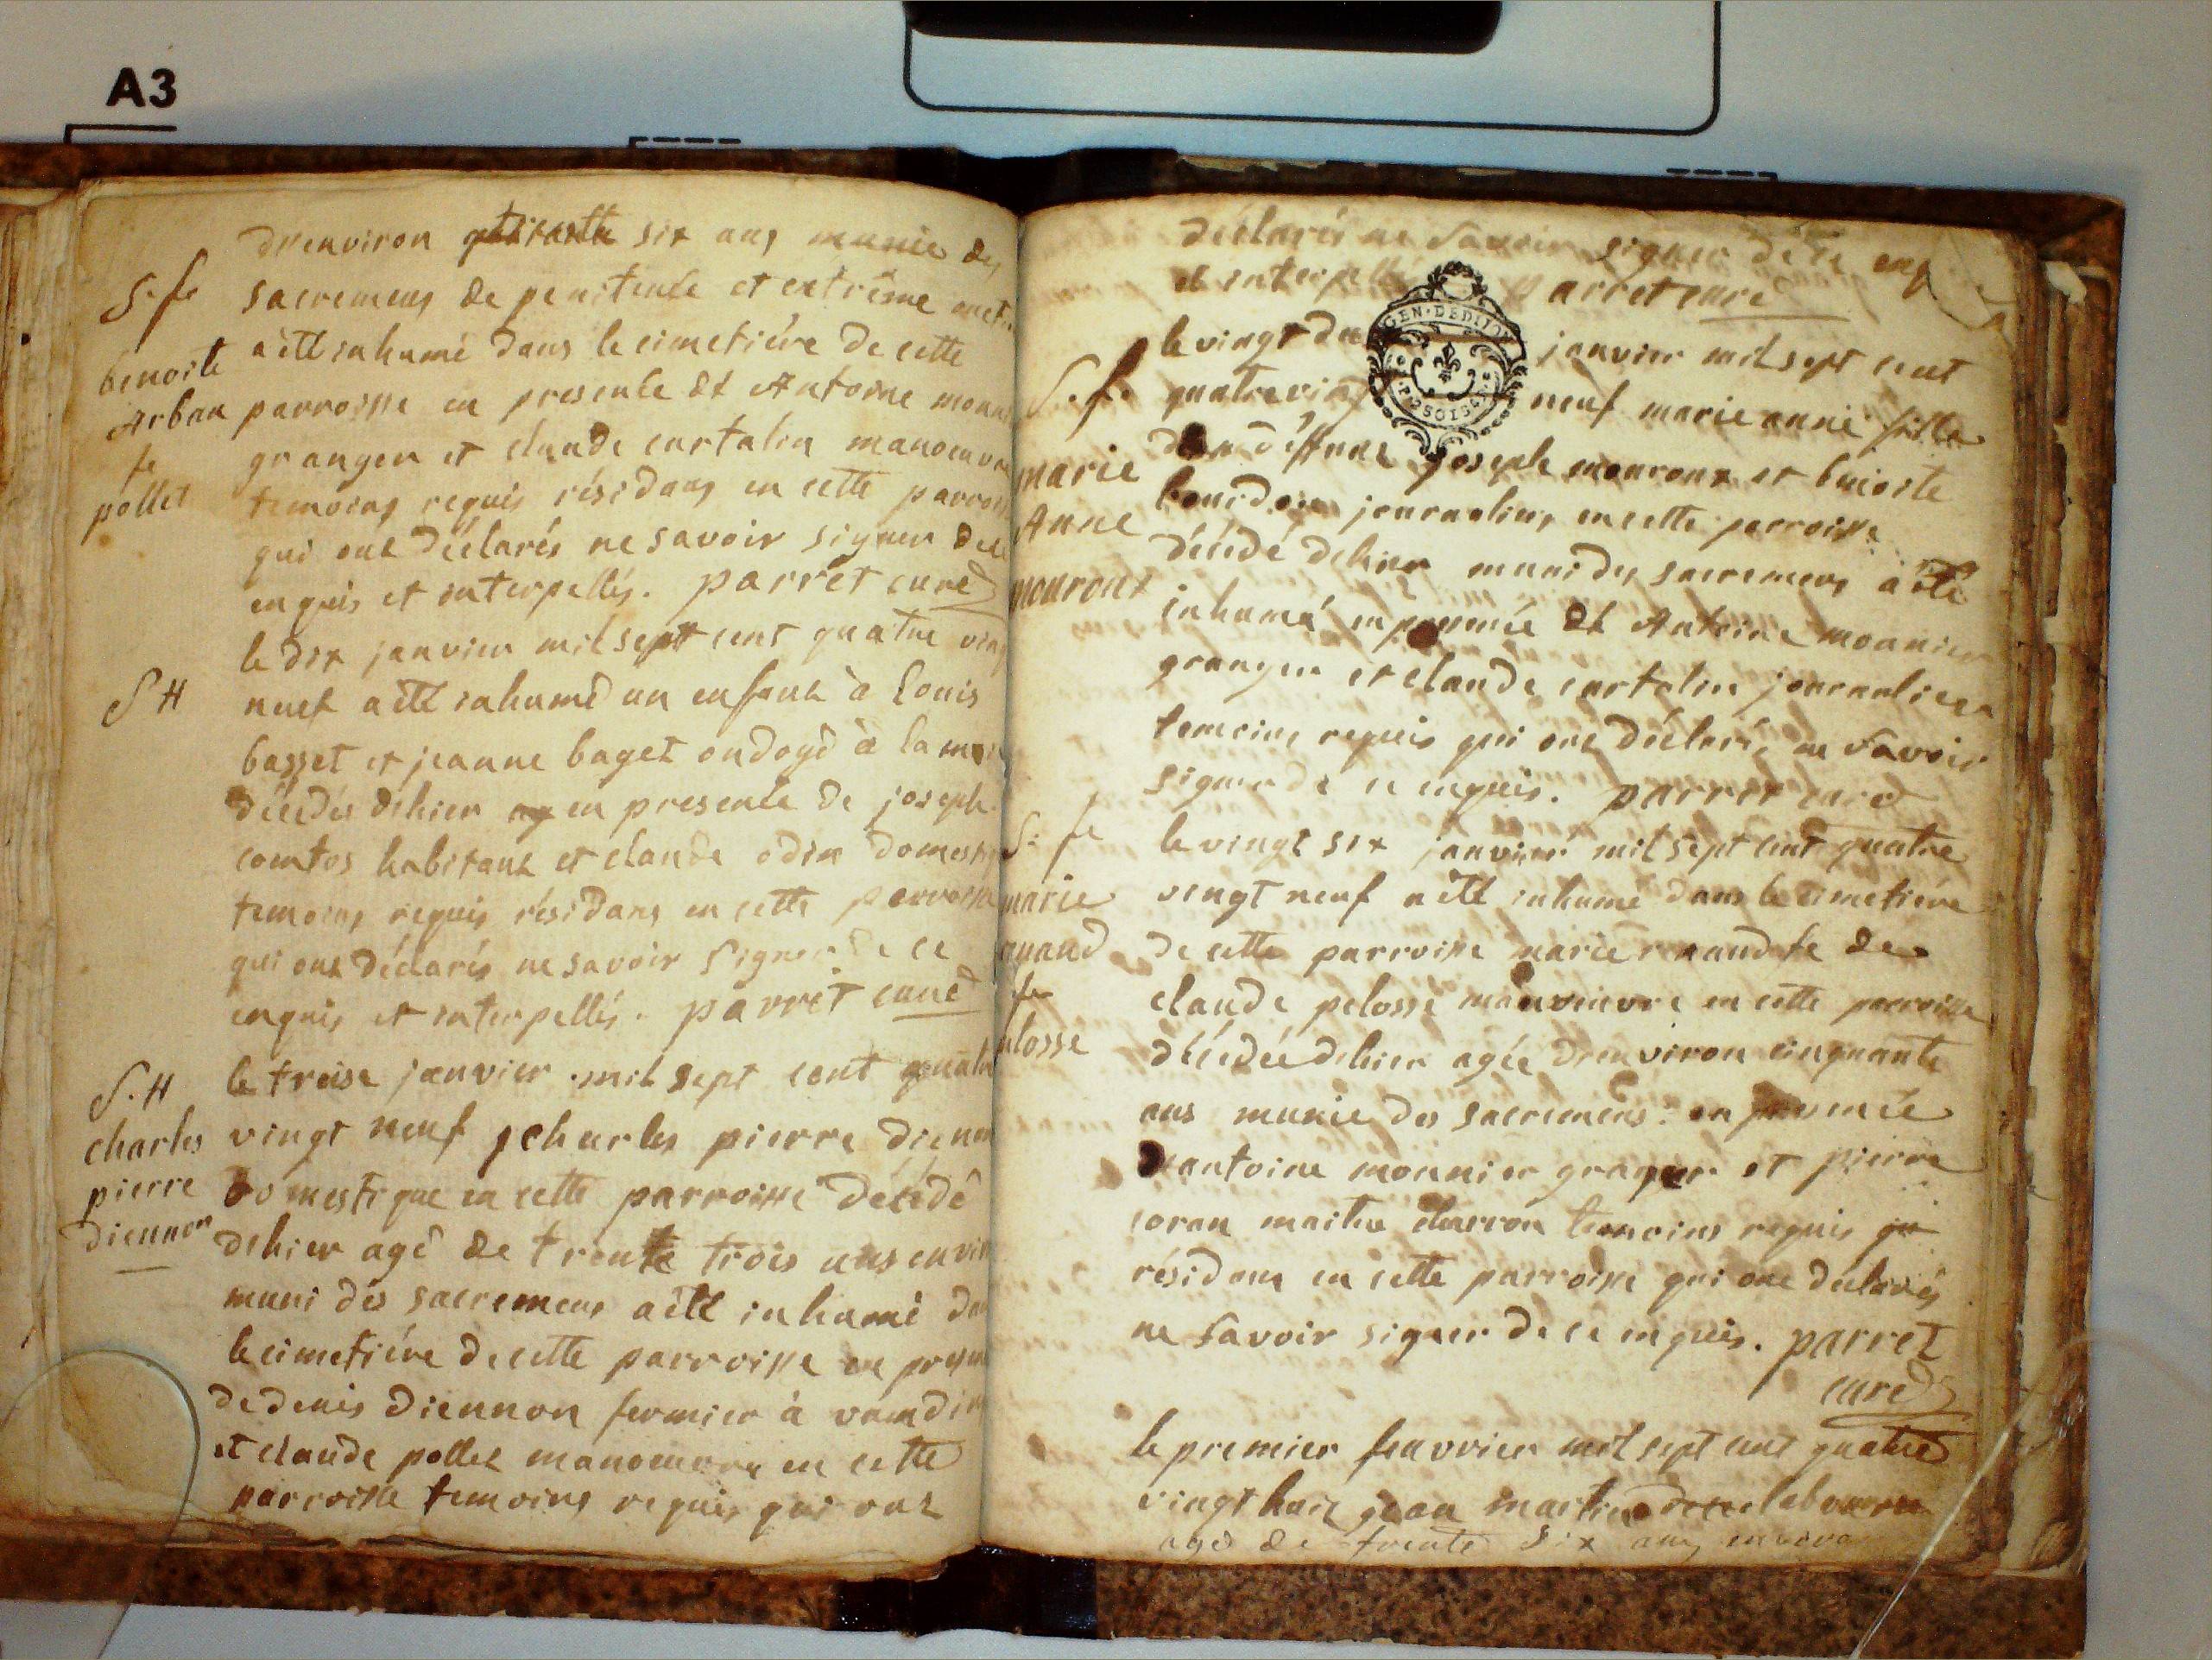 A3
d'environ soixante six ans munie des
S. fe sacremens de penitente et extrême onct
a été inhumé dans le cimetiére de cette
benoite
Arban parroisse en presente de Antoine monn
fe granger et claude curtalin manoeuvr
pollet temoins requis résidans en cette parrois
qui ont déclarés ne savoir signer de ce
enquis et interpellés. parret curé
le dix janvier mil sept cent quatre ving
S H neuf a été inhumé un enfant à Louis
basset et jeanne baget ondoyé à la mai
décédés dhier en presente de joseph
comtos habitant et claude odin domestiq
temoins requis résidans en cette parroisse
qui ont déclarés ne savoir signer de ce
enquis et interpellés. parret curé
S. H le treise janvier mil sept cent quatr
charles vingt neuf charles pierre dienn
pierre domestique en cette parroisse décédé
diennon dhier agé de trente trois ans envir
muni des sacremens a été inhumé da
le cimetiére de cette parroisse en presen
de denis diennon fermier à
et claude pollet manoeuvre en cette
parroisse temoins requis qui ont
déclarés ne savoir signer de ce enq
et interpellé parret curé
GEN. DE DIJON
le vingt janvier mil sept cent
S. f. quatre ving neuf marie anne fille
marie joseph mouroux et benoite
Anne bourdon journaliers en cette parroisse
mouroux décédé dhier muni des sacremens a été
inhumé en presence de Antoine monnier
granger et claude curtalin journalier
temoins requis qui ont déclarés ne savoir
signer de ce enquis. parret curé
S. fe le vingt six janvier mil sept cent quatre
marie vingt neuf a été inhumé dans le cimetiére
de cette parroisse marie fe de
fe claude pelosse manoeuvre en cette parroisse
elosse décédée dhier agée d'environ cinquante
ans munie des sacremens. en presence
antoine monnier granger et pierre
coran maitre charron temoins requis
résidans en cette parroisse qui ont declarés
ne savoir signer de ce enquis. parret
curé
le premier feuvrier mil sept cent quatre
vingt huit jean martin laboureur
agé de trente six ans environ